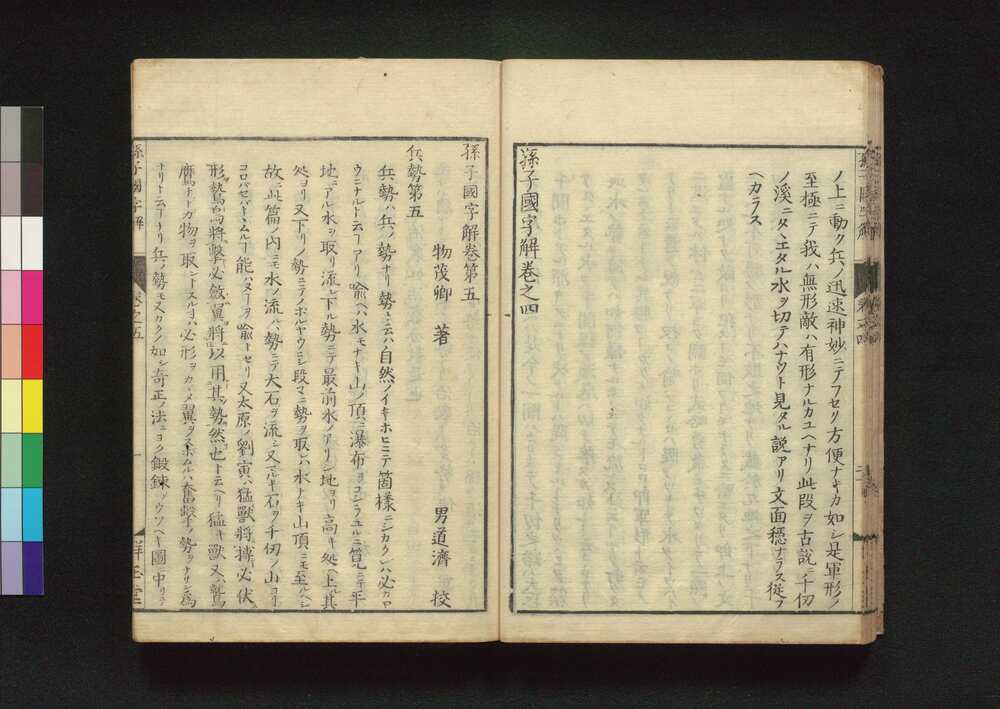 ノ上ニ動ク兵ノ迅速神妙ニテフセク方便ナキカ如シ是軍形ノ
至極ニテ我ハ無形敵ハ有形ナルカユヘナリ此段ヲ古説ニ千仞
ノ溪ニタヽエタル水ヲ切テハナツト見タル説アリ文面穩ナラス從フ
ヘカラス
孫子國字解卷之四
孫子國字解卷第五
物茂卿 著
男道濟 校
兵勢第五
兵勢ハ兵ノ勢ナリ勢ト云ハ自然ノイキホヒニテ箇樣ニシカクレハ必カロ
ウニナルト云フアリ喩ヘハ水モナキ山ノ頂ニ瀑布ヲコシラユルニ筧ニテ平
地ニアル水ヲ取リ流シ下ル勢ニテ最前水ノアリシ地ヨリ高キ処ヘ上其
処ヨリ又下リノ勢ニテノホルヤウニシ段々ニ勢ヲ取レハ水ナキ山頂ニモ至ルヘシ
故ニ此篇ノ内ニモ水ノ流ハ勢ニテ大石ヲ流シ又マルキ石ヲ千仞ノ山ヨリ
コロバセバトヽムルフ能ハヌフヲ喩トセリ又太原ノ劉寅ハ猛獸將搏必伏
形鷙鳥將擊必斂翼將以用其勢然也ト云ヘリ猛キ獸又ハ鷙
鷹ナトガ物ヲ取ントスルヨハ必形ヲカヽメ翼ヲスボムルハ奮擊ノ勢ヲナサン為
ナリト云フナリ兵ノ勢モ又カクノ如シ奇正ノ法ニヨク鍛錬
孫子國字解
卷之五